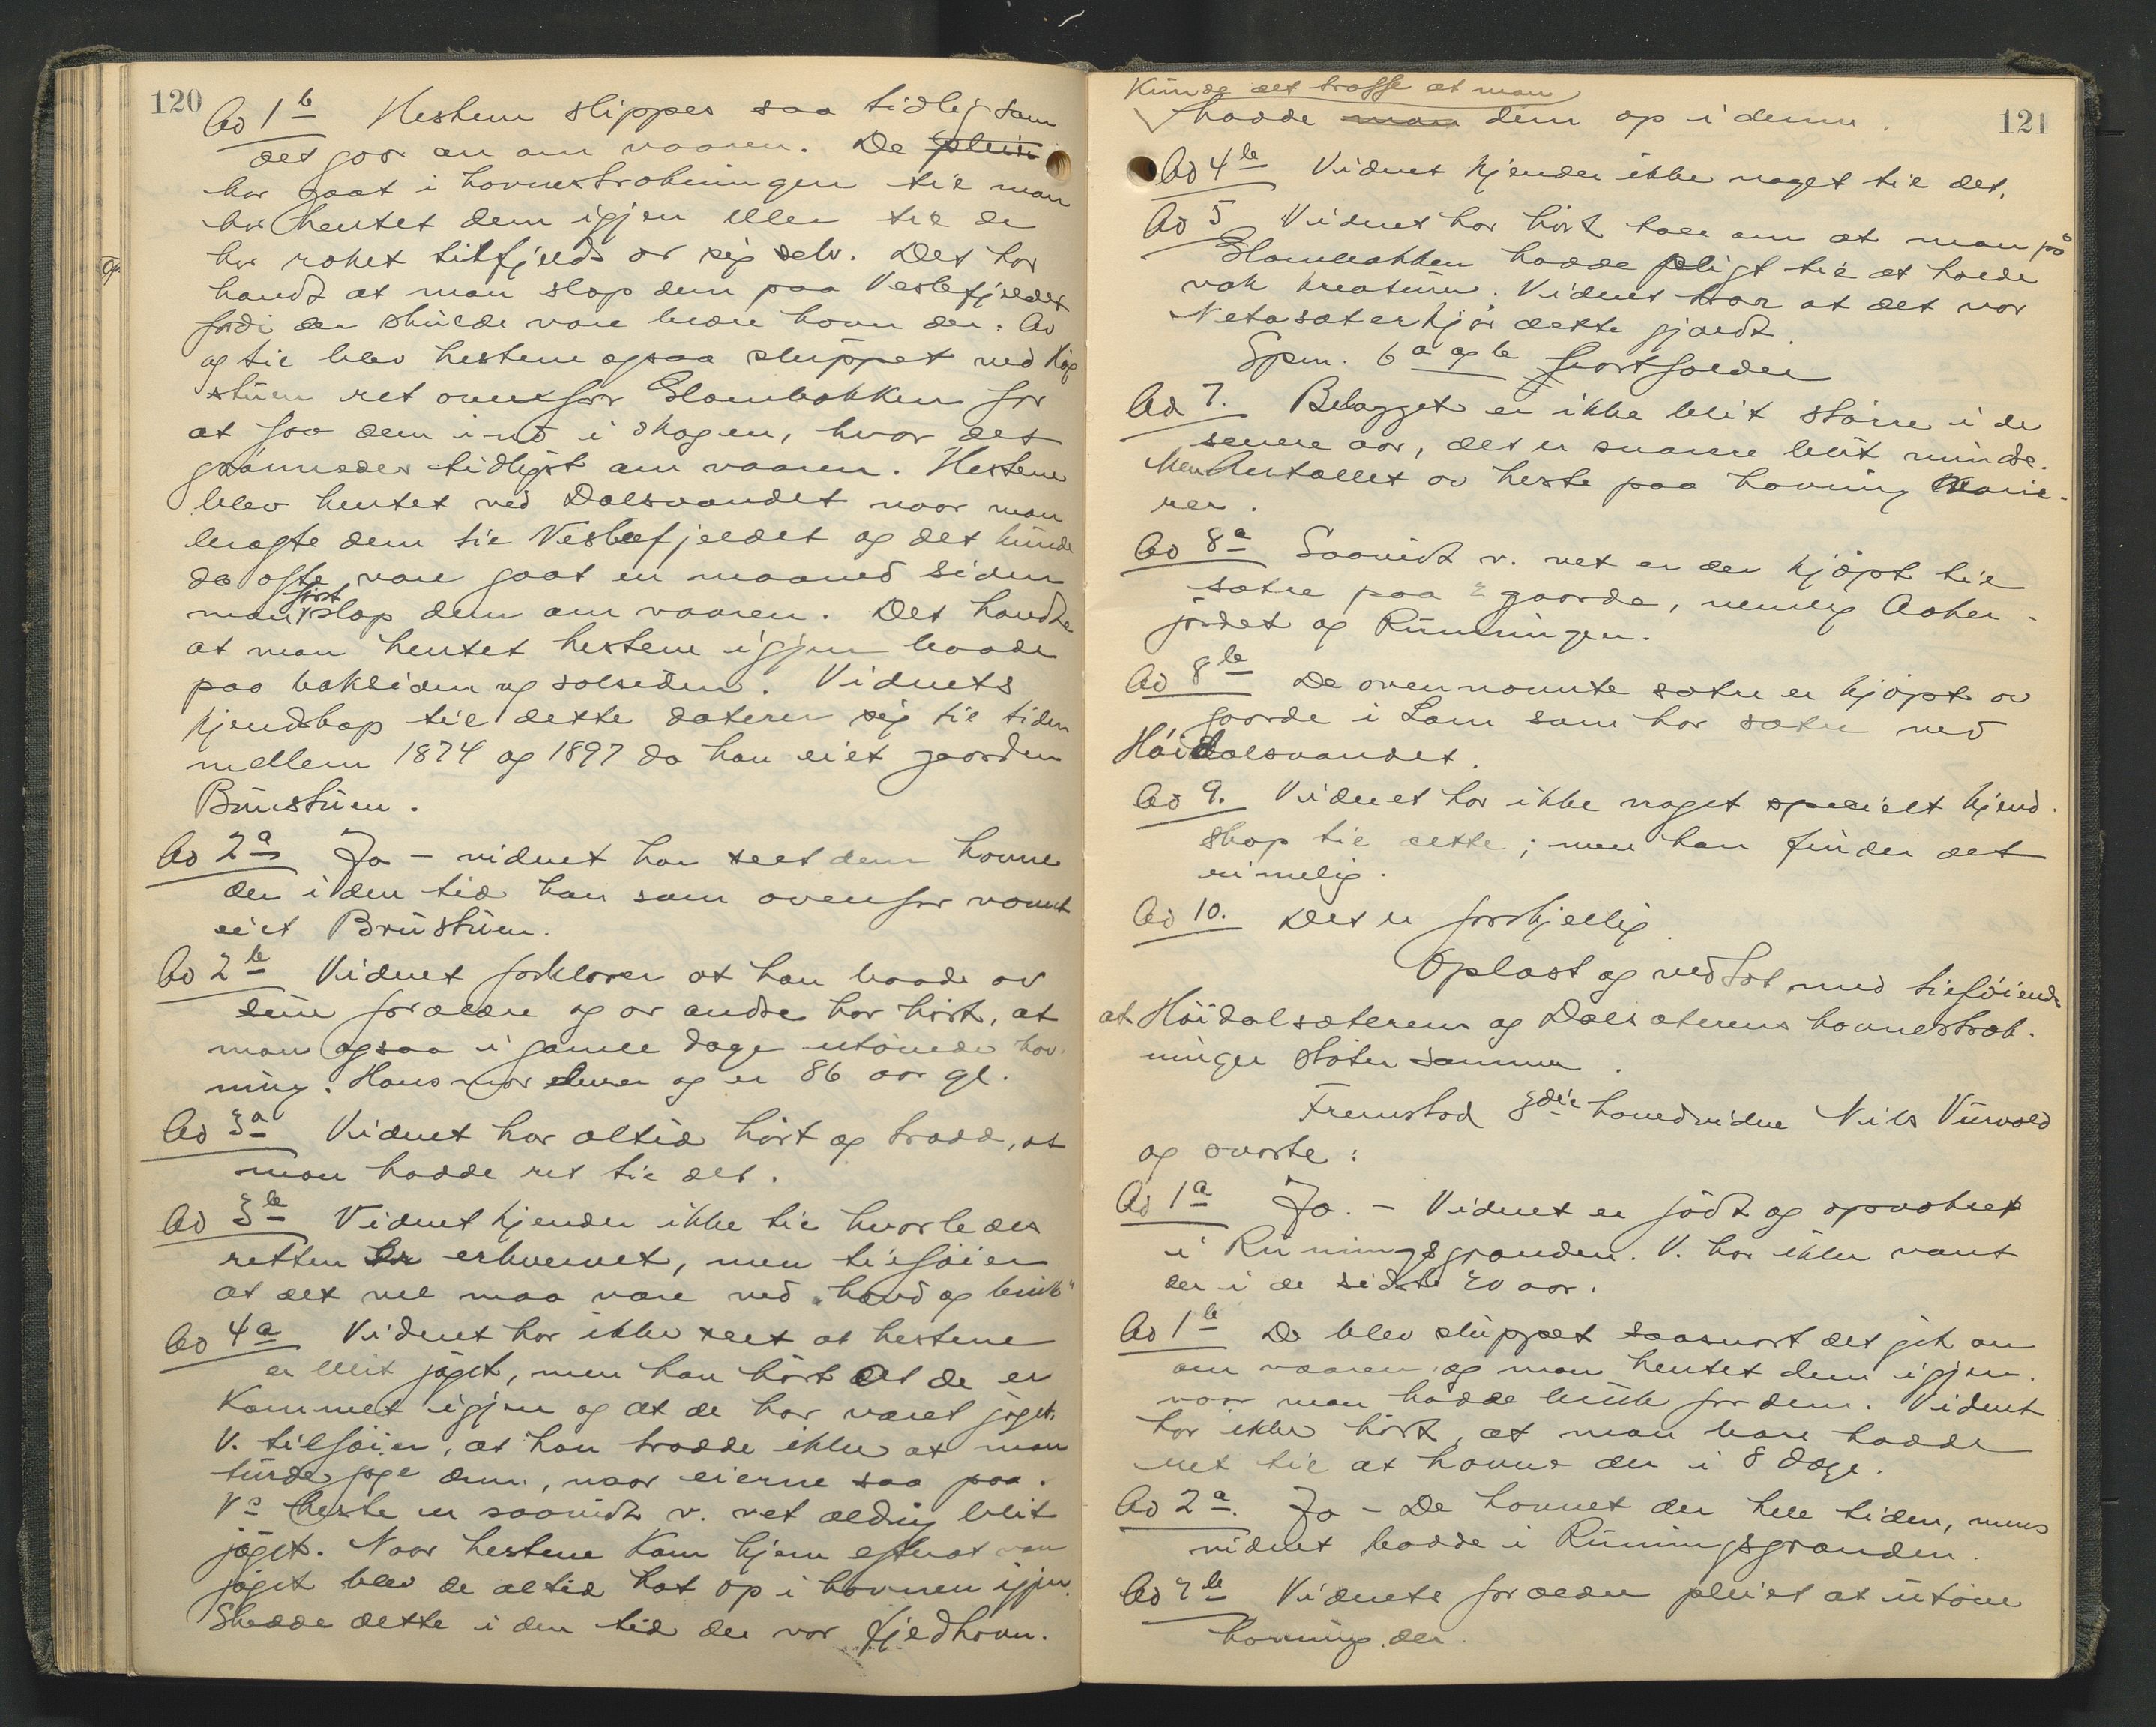 120
Ad 1b Hestene slippes saa tidlig som
det gaar an om vaaren. De pleier
har gaat i havnestrækningen til man
har hentet dem igjen eller til de
har raket tilfjelds av sig selv. Det har
hændt at man slap dem paa Veslefjeldet
fordi der skulde være bedre havn der. Av
og til blev hestene ogsaa sluppet ved Høg-
stuen ret overfor Glambakken for
at faa dem ind i skogen, hvor det
grønnedes tidligst om vaaren. Hestene
blev hentet ved Dalsvandet naar man
bragte dem til Veslefjeldet og det kunde
da ofte være gaat en maaned siden
man først slap dem om vaaren. Det hændte
at man hentet hestene igjen baade
paa baksiden og solsiden. Vidnets
kjendskap til dette daterer sig til tiden
mellem 1874 og 1897 da han eiet gaarden
Brustuen.
Ad 2a Ja - vidnet har seet dem havne
der i den tid han som ovenfor nævnt
eiet Brustuen.
Ad 2b Vidnet forklarer at han baade av
sine forældre og av andre har hørt, at
man ogsaa i gamle dage utøvede hav-
ning. Hans mor lever og er 86 aar gl.
Ad 3a Vidnet har altid hørt og trodd, at
man hadde ret til det.
Ad 3b Vidnet kjender ikke til hvorledes
retten er erhvervet, men tilføier
at det vel maa være ved "hævd og bruk"
Ad 4a Vidnet har ikke seet at hestene
er blit jaget, men han hørt at de er
kommet igjen og at de har været jaget.
V. tilføier, at han trodde ikke at man
turde jage dem, naar eierne saa paa.
Vs heste er saavidt v. vet aldrig blit
jaget. Naar hestene kom hjem efterat være
jaget blev de altid hat op i havnen igjen.
Skedde dette i den tid der var fjeldhavn.
op.
121
kunde det træffe at man
hadde man dem op i denne.
Ad 4b Vidnet kjender ikke noget til det.
Ad 5 Vidnet har hørt tale om at man på
Glambakken hadde pligt til at holde
vak kreaturer. Vidnet tror at det var
Netosæterkjør dette gjaldt.
Spm. 6a og b bortfalder
Ad 7. Belægget er ikke blit større i de
senere aar, det er snarere blit mindre.
Men Antallet av heste paa havning varie-
rer.
Ad 8a Saavidt v. vet er der kjøpt til
sætre paa 2 gaarde, nemlig Aaker-
jordet og Runningen.
Ad 8b De ovennævnte sætre er kjøpt av
gaarde i Lom som har sætre ved
Høidalsvandet.
Ad 9. Vidnet har ikke noget specielt kjend-
skap til dette; men han finder det
rimelig.
Ad 10. Det er forskjellig.
Oplæst og vedtat med tilføiende
at Høidalsæterens og Dalsæterens havnestræk-
ninger støter sammen.
Fremstod 8de hovedvidne Nils Vürvold
og svarte:
Ad 1a Ja. - Vidnet er født og opvokset
i Runningsgranden. V. har ikke vært
der i de sidste 20 aar.
Ad 1b De blev sluppet saasnart det gik an
om vaaren og man hentet dem igjen.
naar man hadde bruk for dem. Vidnet
har ikke hørt, at man bare hadde
ret til at havne der i 8 dage.
Ad 2a. Ja - De havnet der hele tiden, mens
vidnet bodde i Runningsgranden.
Ad 2b Vidnets forældre pleiet at utøve
havning der.